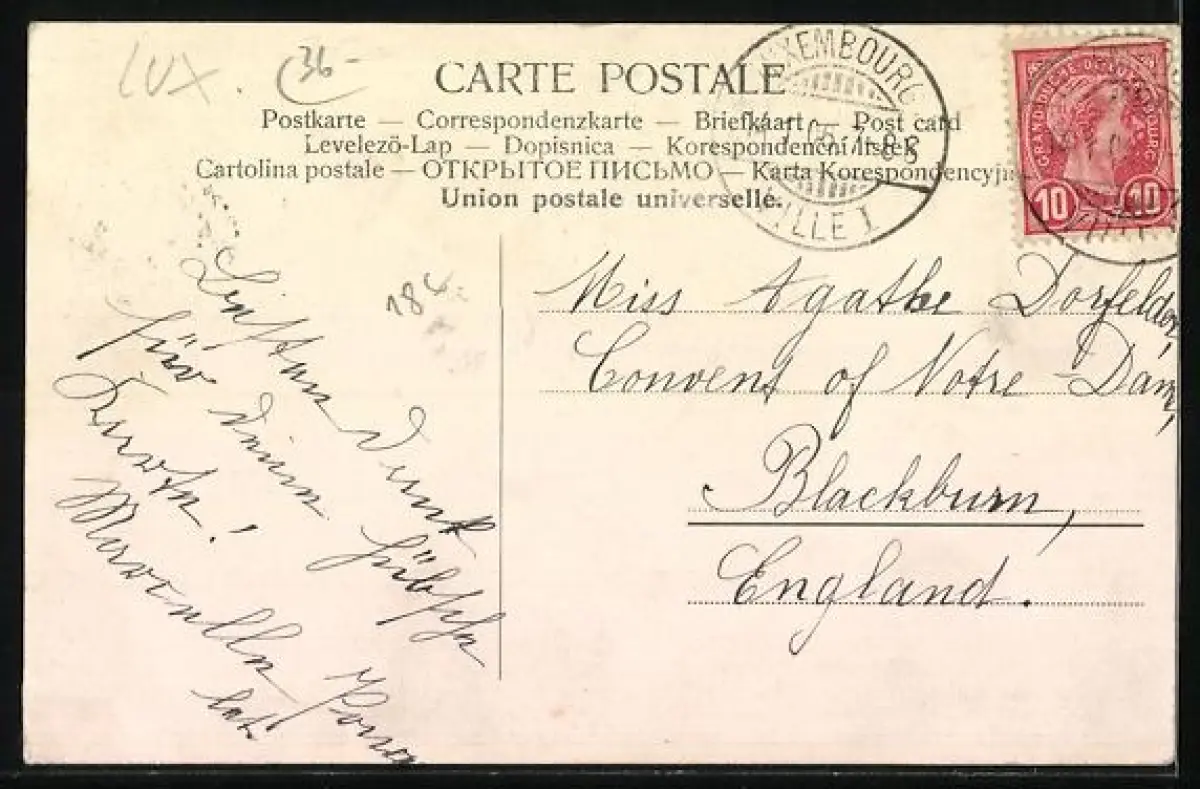 LUX.
36-
CARTE POSTALE
Postkarte — Correspondenzkarte — Briefkaart — Post card
Levelező-Lap — Dopisnica — Korespondenční lístek
Cartolina postale — ОТКРЫТОЕ ПИСЬМО — Karta Korespondencyjna
Union postale universelle.
LUXEMBOURG
VILLE I
GRAND DUCHÉ DE LUXEMBOURG
10 10
18 c
Miss Agathe Dorfelder,
Convent of Notre-Dame,
Blackburn,
England.
Besten Dank
für deine hübsche
Karte!